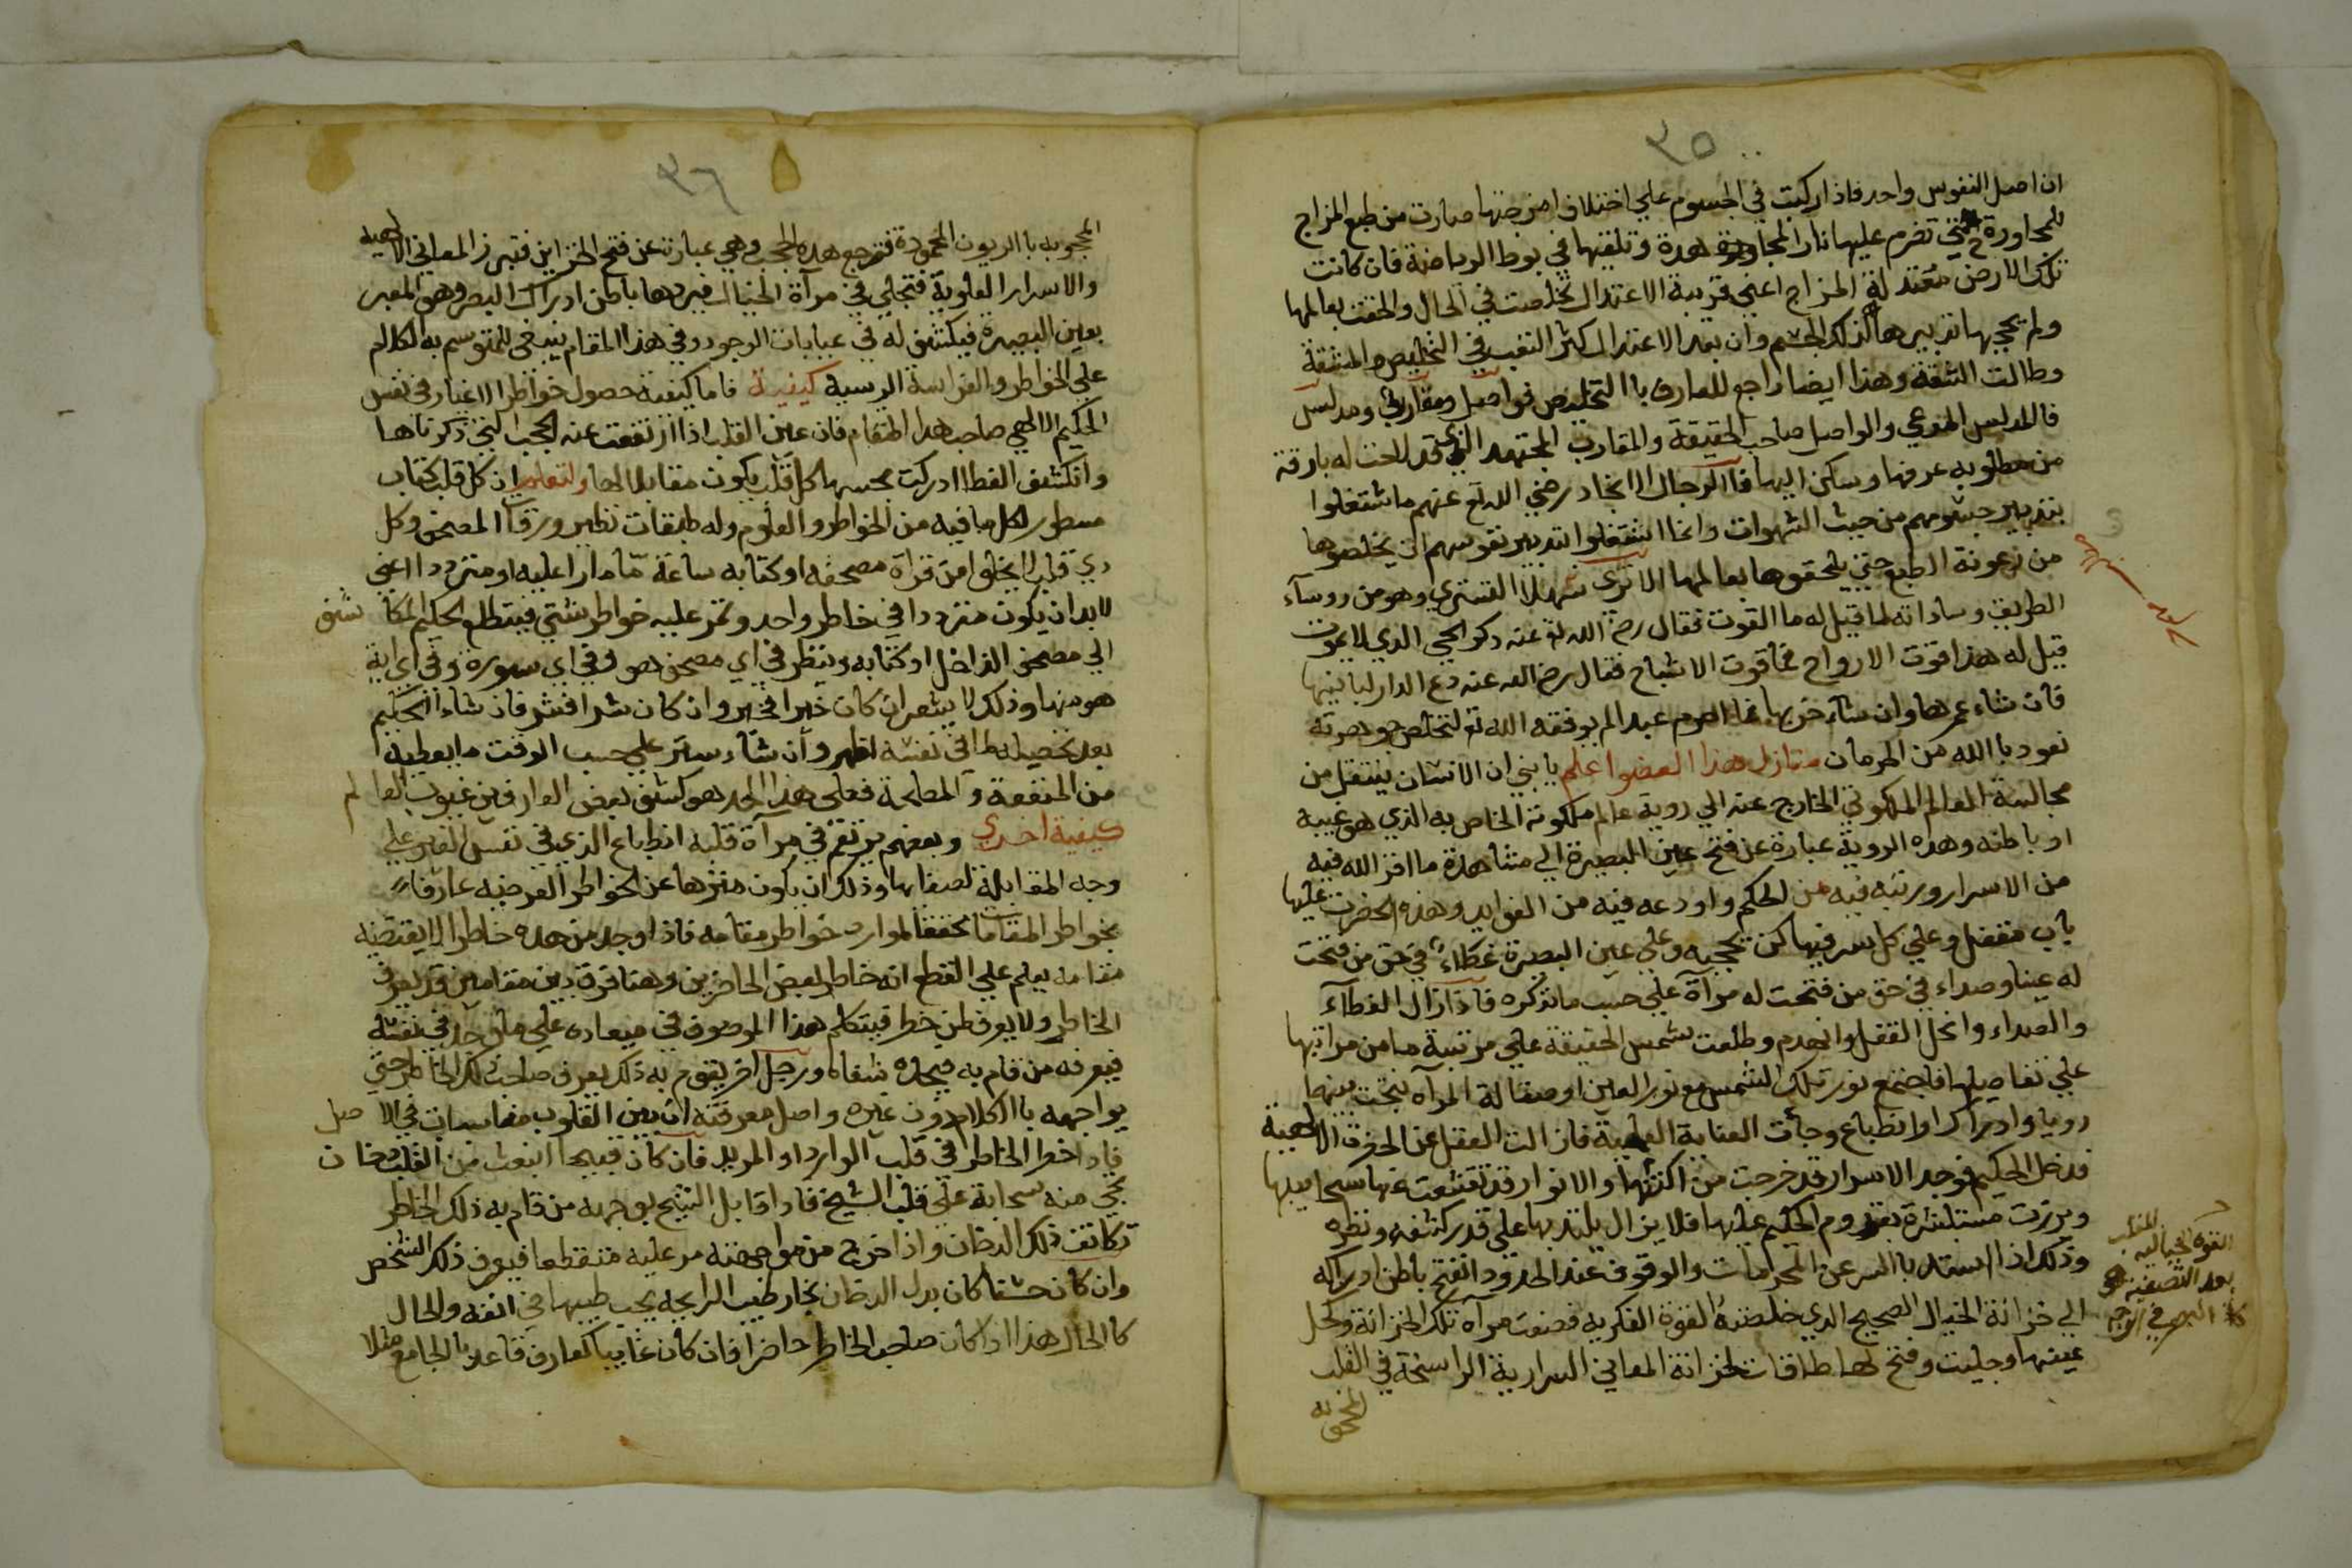 ٣٥
ان اصل النفوس واحد فاذا ركبت في الجسوم علي اختلاف امزجتها صارت من طبع المزاج
للمجاورة حتي تضرم عليها نار المجاهدة وتلقيها في بوط الرياضة فان كانت
تلك الارض معتدلة المزاج اعني قريبة الاعتدال تخلصت في الحال والحقت بعالمها
ولم يحجبها تدبيرها لذلك الجسم وان بعد الاعتدال كثر التعب في التخليص والمشقة
وطالت الشقة وهذا ايضا راجع للعارف باالتخليص فواصل ومقارب ومدلس
فالمدلس المدعي والواصل صاحب الحقيقة والمقارب المجتهد الذي قد لاحت له بارقة
من مطلوبه عرفها وسكن اليها فاالرجال الانجاد رضي الله تع عنهم مااشتغلوا
بتدبير جسومهم من حيث الشهوات وانما اشتغلوا بتدبير نفوسهم الي يخلصوها
من رعونة الطبع حتي يلحقوها بعالمها الا تري سهلا التستري وهو من روسآء
الطريق وساداته لما قيل له ما القوت فقال رضي الله تع عنه ذكر الحي الذي لا يموت
قيل له هذا قوت الارواح فما قوت الاشباح فقال رضي الله عنه دع الدار لبانيها
فان شاء عمرها وان شآء خربها فما احرم عبدا لم يوفقه الله تع لتخلص جوهرته
نعود باالله من الحرمان منازل هذا العضو اعلم يا بني ان الانسان ينتقل من
مجالسة العالم الملكوتي الخارج عنه الي روية عالم ملكوته الخاص به الذي هو غيبه
او باطنه وهذه الروية عبارة عن فتح عين البصيرة الي مشاهدة ما افرز الله فيه
من الاسرار ورتبه فيه من الحكم واودعه فيه من الفوايد وهذه الحضرت عليها
باب مقفل وعلي كل سر فيها كن يحجبه وعلي عين البصيرة غطاء في حق من فتحت
له عينا وصداء في حق من فتحت له مرآة علي حسب مانذكره فاذا زال الغطآء
والصداء وانحل القفل وانهدم وطلعت شمس الحقيقة علي مرتبة ما من مراتبها
علي تفاصيلها فاجتمع نور تلك الشمس مع نور العين او صقالة المرآه نتجت بينهما
رويا وادراكا او انطباع وجأت العناية العلمية فازالت العقل عن الحضرة الالهية
فدخل الحكيم فوجد الاسرار قد خرجت من اكنتها والانوار قد تقشعت عنها سحاييبها
وبرزت مستبشرة بقدوم الحكيم عليها فلايزال يلتد بها علي قدر كشفه ونظره
وذلك اذا استد باالسر عن المحرامات والوقوف عند الحدود انفتح باطن ادراكه
الي خزانة الخيال الصحيح الدي خلصته القوة الفكريه فصفت مرآه تلك الخزانة وكحل
عينها وجليت وفتح لها طاقات لخزانة المعاني السرارية الراسخة في القلب
المحجوبه
القوة الخياليه
بعد التصفيه هي
البصر في
٣٦
المحجوبه باالريون المحمودة فترجع هده الحجب وهي عبارت عن فتح الخزاين فتبرز المعاني الالهيه
والاسرار العلوية فتجلي في مرآة الخيال فيردها باطن ادراك البصر وهو المعبر
بعين البصيرة فيكشف له في عبابات الوجود وفي هذا المقام ينبغي للمتوسم به الكلام
علي الخواطر والفراسة الرسية كيفية فاما كيفية حصول خواطر الاغيار في نفس
الحكيم الالهي صاحب هدا المقام فان عين القلب اذا ارتفعت عنه الحجب التي ذكرناها
وانكشف الغطا ادركت بحسها كل قلب يكون مقابلا لها ولتعلم ان كل قلب كتاب
مسطور لكل ما فيه من الخواطر والعلوم وله طبقات نظير ورقآ المصحف وكل
دي قلب لايخلو امن قرآة مصحفه او كتابه ساعة مّا مارا عليه او مترددا اعني
لابد ان يكون مترددا في خاطر واحد وتمر عليه خواطر شتي فيتطلع الحكيم المكا شف
الي مصحف الداخل او كتابه وينظر في اي مصحف هو وفي اي سورة وفي اي اية
هو منها وذلك لا يشعر ان كان خيرا فخير وان كان شرا فشر فان شاء الحكيم
بعد تحصيله ما في نفسه اظهر وان شاء ستر علي حسب الوقت مايعطيه
من المنفعة والمصلحة فعلي هذا الحد هو كشف بعض العارفين غيوب العالم
كيفية اخري وبعضهم يرتقم في مرآة قلبه انطباع الذي في نفس الغير علي
وجه المقابلة لصفايها وذلك ان يكون منزها عن الخواطر العرضيه عارفا
بخواطر المقامات محققا لموارد خواطر مقامه فاذا وجد من هده خاطرا لايقتضيه
مقامه يعلم علي القطع انه خاطر لبعض الحاضرين وهنا فرق بين مقامين قد يعرف
الخاطر ولايعرف لمن خطر فيتكلم هذا الموصوف في ميعاده علي ماوجد في نفسه
فيعرفه من قام به فيجده شفاه ورجل اخر يقوم به ذلك يعرف صاحب ذلك الخاطر حتي
يواجهه باالكلام دون غيره واصل معرفته ان بين القلوب مناسبات في الا صل
فاداخطر الخاطر في قلب الوارد او المريد فان كان قبيحا انبعث من القلب دخان
يجي منه سحابة علي قلب الشيخ فادا قابل الشيخ بوجهه من قام به ذلك الخاطر
تكاثف ذلك الدخان واذا خرج من مواجهته مر عليه متقطعا فيعرف ذلك الشخص
وان كان حسنا كان بدل الدخان بخار طيب الرايحه يجب طيبها في انفه والحال
كاالحال هذا اذا كان صاحب الخاطر حاضرا فان كان غايبا كعارف قاعد باالجامع مثلا